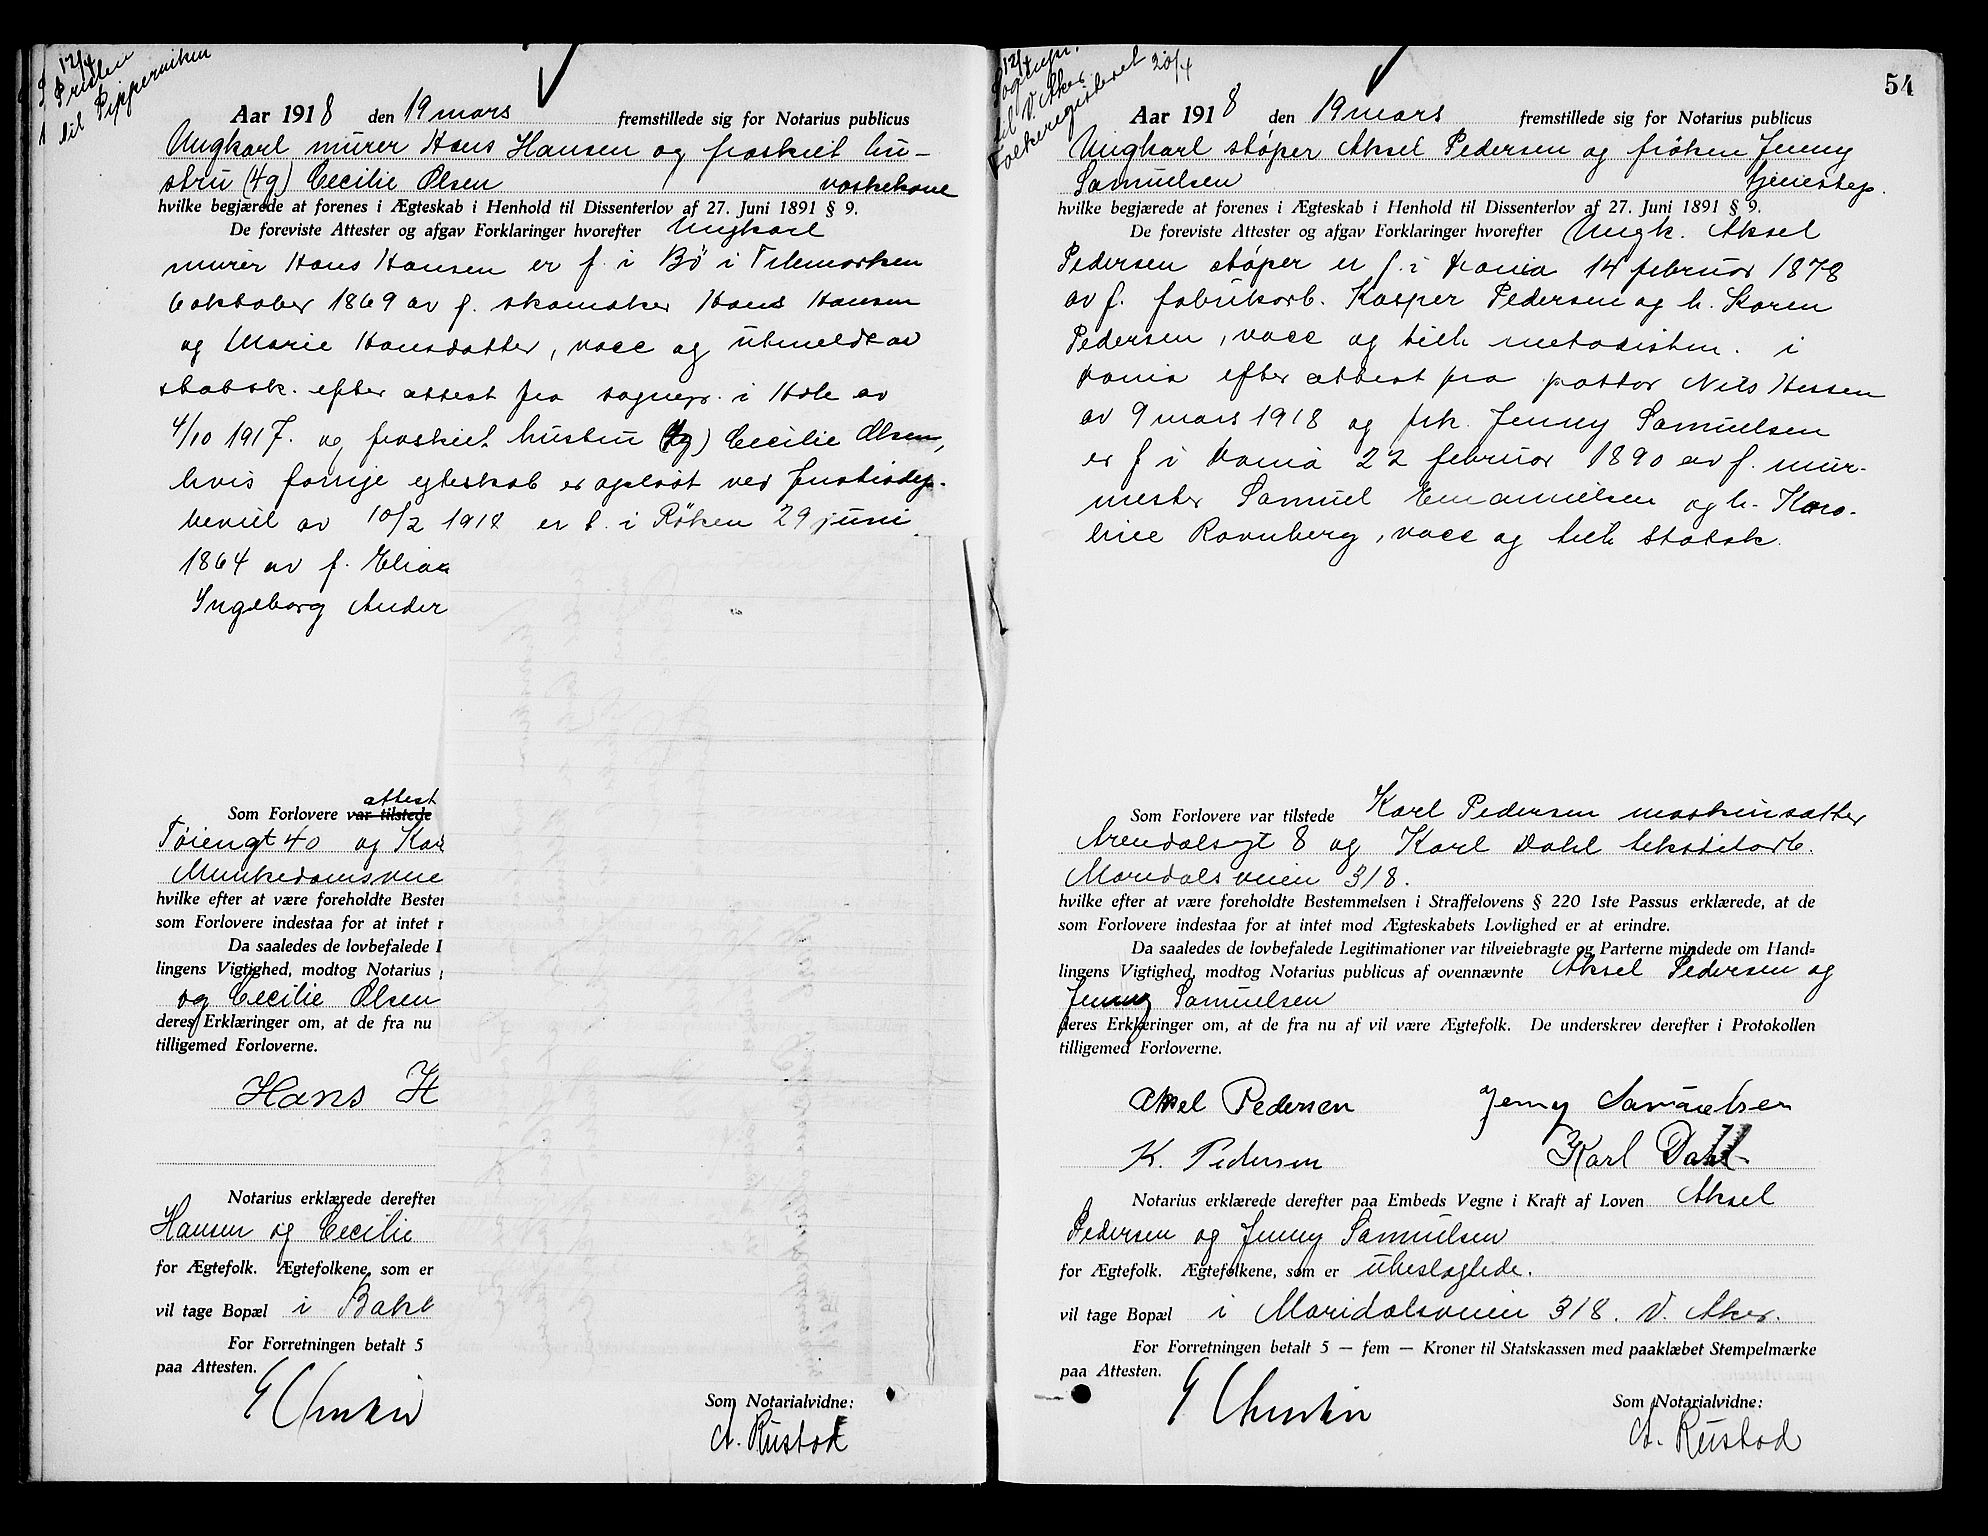 12/4
Presten
til Pipperviken
Aar 1918 den 19 mars fremstillede sig for Notarius publicus
Ungkarl murer Hans Hansen og fraskilt hu-
stru (4g) Cecilie Olsen vaskekone
hvilke begjærede at forenes i Ægteskab i Henhold til Dissenterlov af 27. Juni 1891 § 9.
De foreviste Attester og afgav Forklaringer hvorefter Ungkarl
murer Hans Hansen er f. i Bø i Telemarken
6 oktober 1869 av f. skomaker Hans Hansen
og Marie Hansdatter, vacc og utmeldt av
statsk. efter attest fra sognepr. i Hole av
4/10 1917. og fraskilt hustru (4g) Cecilie Olsen,
hvis forrige egteskab er opløst ved justisdep.
bevill av 10/2 1918 er f. i Røken 29 juni
1864 av f. Elias
Ingeborg Ander
attest
Som Forlovere var tilstede
Tøiengt 40 og Kar
Munkedamsveie
hvilke efter at være foreholdte Bester
som Forlovere indestaa for at intet
Da saaledes de lovbefalede
lingens Vigtighed, modtog Notarius
og Cecilie Olsen
deres Erklæringer om, at de fra nu
tilligemed Forloverne.
Hans H
Notarius erklærede derefter
Hansen og Cecilie
for Ægtefolk. Ægtefolkene, som er
vil tage Bopæl i Bakk
For Forretningen betalt 5
paa Attesten.
Som Notarialvidne:
A. Rustad
54
12/4
Sognepr.
til V. Aker
Folkeregisteret 20/4
Aar 1918 den 19 mars fremstillede sig for Notarius publicus
Ungkarl støper Aksel Pedersen og frøken Jenny
Samuelsen tjenestep.
hvilke begjærede at forenes i Ægteskab i Henhold til Dissenterlov af 27. Juni 1891 § 9.
De foreviste Attester og afgav Forklaringer hvorefter Ungk. Aksel
Pedersen støper er f. i Krania 14 februar 1878
av f. fabrikarb. Kasper Pedersen og h. Karen
Pedersen, vacc og tilh metodistm. i
Krania efter attest fra pastor Nils Hessen
av 9 mars 1918 og frk. Jenny Samuelsen
er f i Krania 22 februar 1890 av f. mur-
mester Samuel Emanuelsen og h. Karo-
line Ravnberg, vacc og tilh statsk.
Som Forlovere var tilstede Karl Pedersen maskinsætter
Arendalsgt 8 og Karl Dahl tekstilarb.
Maridalsveien 318.
hvilke efter at være foreholdte Bestemmelsen i Straffelovens § 220 1ste Passus erklærede, at de
som Forlovere indestaa for at intet mod Ægteskabets Lovlighed er at erindre.
Da saaledes de lovbefalede Legitimationer var tilveiebragte og Parterne mindede om Hand=
lingens Vigtighed, modtog Notarius publicus af ovennævnte Aksel Pedersen og
Jenny Samuelsen
deres Erklæringer om, at de fra nu af vil være Ægtefolk. De underskrev derefter i Protokollen
tilligemed Forloverne.
Aksel Pedersen Jenny Samuelsen
K. Pedersen Karl Dahl
Notarius erklærede derefter paa Embeds Vegne i Kraft af Loven Aksel
Pedersen og Jenny Samuelsen
for Ægtefolk. Ægtefolkene, som er ubeslægtede.
vil tage Bopæl i Maridalsveien 318. V. Aker.
For Forretningen betalt 5 — fem — Kroner til Statskassen med paaklæbet Stempelmærke
paa Attesten.
Som Notarialvidne:
A. Rustad